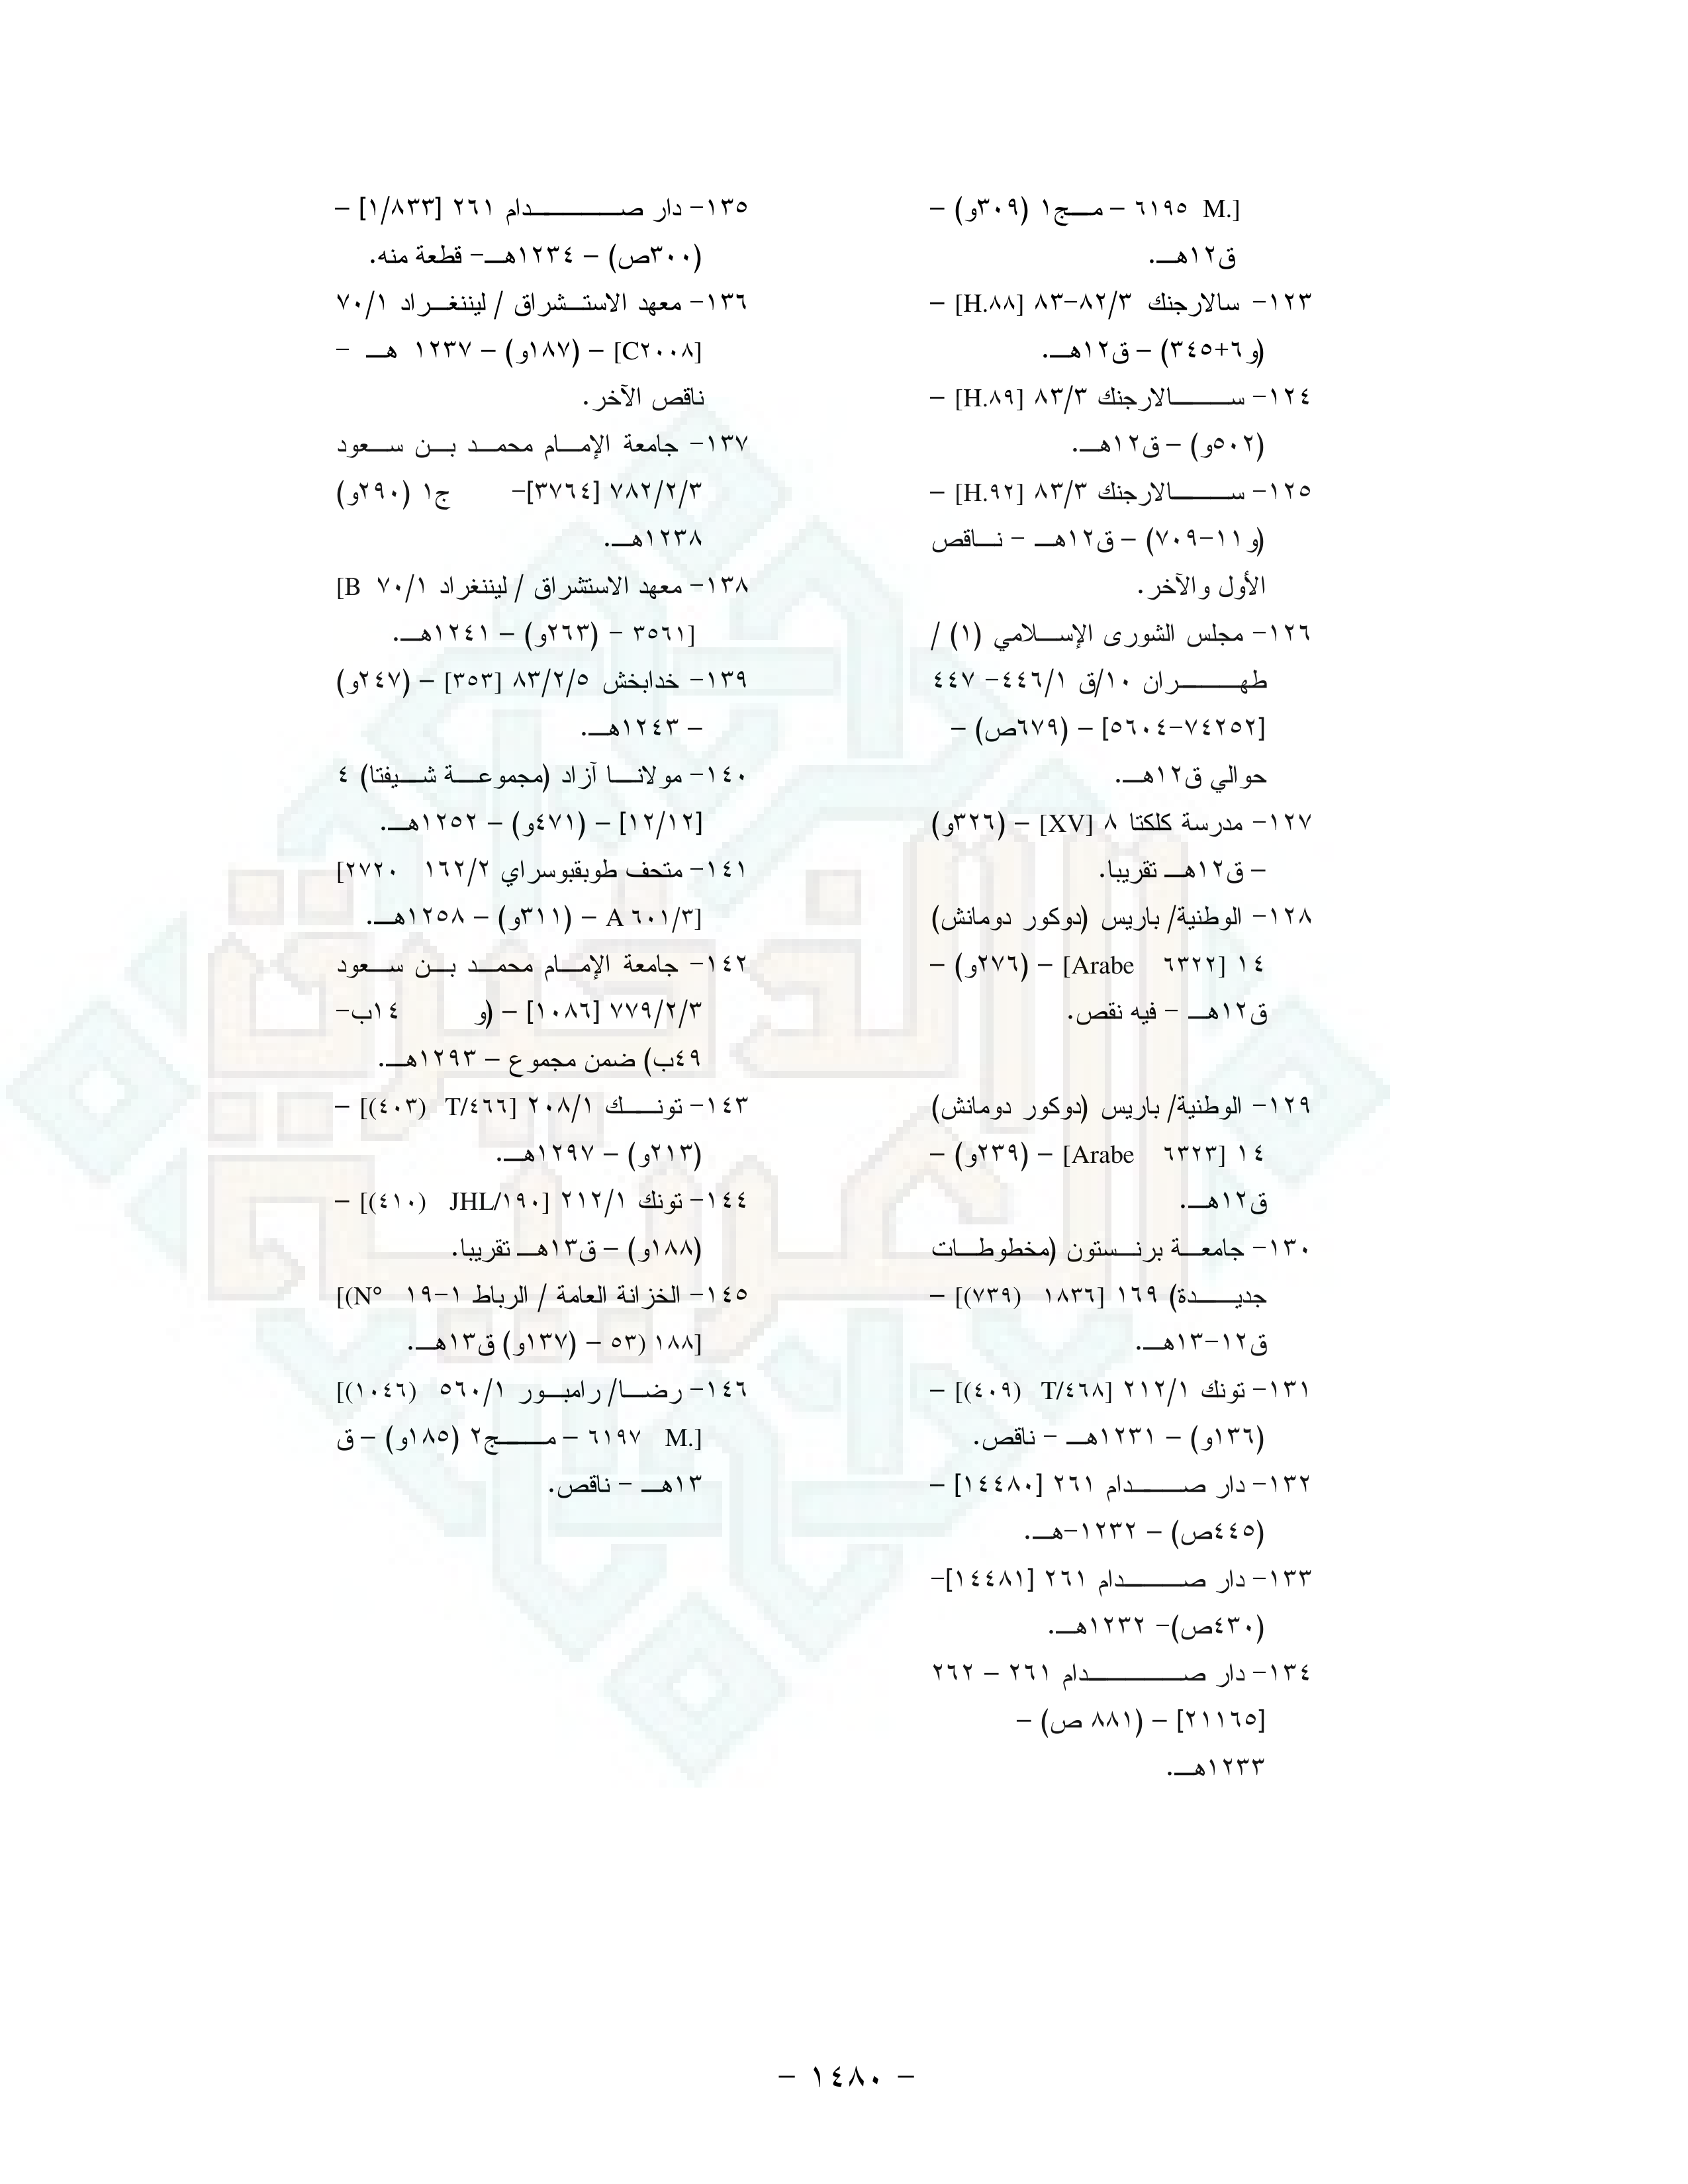 [M. ٦١٩٥ – مج١ (٣٠٩و) –
ق١٢هـ.
١٢٣- سالارجنك ٨٢/٣-٨٣ [H.٨٨] –
(و٦+٣٤٥) – ق١٢هـ.
١٢٤- سالارجنك ٨٣/٣ [H.٨٩] –
(٥٠٢و) – ق١٢هـ.
١٢٥- سالارجنك ٨٣/٣ [H.٩٢] –
(و١١-٧٠٩) – ق١٢هـ – ناقص
الأول والآخر.
١٢٦- مجلس الشورى الإسلامي (١) /
طهران ١٠/ق ٤٤٦/١- ٤٤٧
[٧٤٢٥٢-٥٦٠٤] – (٦٧٩ص) –
حوالي ق١٢هـ.
١٢٧- مدرسة كلكتا ٨ [XV] – (٣٢٦و)
– ق١٢هـ تقريبا.
١٢٨- الوطنية/ باريس (دوكور دومانش)
١٤ [Arabe ٦٣٢٢] – (٢٧٦و) –
ق١٢هـ – فيه نقص.
١٢٩- الوطنية/ باريس (دوكور دومانش)
١٤ [Arabe ٦٣٢٣] – (٢٣٩و) –
ق١٢هـ.
١٣٠- جامعة برنستون (مخطوطات
جديدة) ١٦٩ [١٨٣٦ (٧٣٩)] –
ق١٢-١٣هـ.
١٣١- تونك ٢١٢/١ [T/٤٦٨ (٤٠٩)] –
(١٣٦و) – ١٢٣١هـ – ناقص.
١٣٢- دار صدام ٢٦١ [١٤٤٨٠] –
(٤٤٥ص) – ١٢٣٢-هـ.
١٣٣- دار صدام ٢٦١ [١٤٤٨١]-
(٤٣٠ص)- ١٢٣٢هـ.
١٣٤- دار صدام ٢٦١ – ٢٦٢
[٢١١٦٥] – (٨٨١ ص) –
١٢٣٣هـ.
١٣٥- دار صدام ٢٦١ [١/٨٣٣] –
(٣٠٠ص) – ١٢٣٤هـ- قطعة منه.
١٣٦- معهد الاستشراق / ليننغراد ٧٠/١
[C٢٠٠٨] – (١٨٧و) – ١٢٣٧ هـ -
ناقص الآخر.
١٣٧- جامعة الإمام محمد بن سعود
٧٨٢/٢/٣ [٣٧٦٤]- ج١ (٢٩٠و)
١٢٣٨هـ.
١٣٨- معهد الاستشراق / ليننغراد ٧٠/١ [B
٣٥٦١] – (٢٦٣و) – ١٢٤١هـ.
١٣٩- خدابخش ٨٣/٢/٥ [٣٥٣] – (٢٤٧و)
– ١٢٤٣هـ.
١٤٠- مولانا آزاد (مجموعة شيفتا) ٤
[١٢/١٢] – (٤٧١و) – ١٢٥٢هـ.
١٤١- متحف طوبقبوسراي ١٦٢/٢ [٢٧٢٠
A ٦٠١/٣] – (٣١١و) – ١٢٥٨هـ.
١٤٢- جامعة الإمام محمد بن سعود
٧٧٩/٢/٣ [١٠٨٦] – (و ١٤ب-
٤٩ب) ضمن مجموع – ١٢٩٣هـ.
١٤٣- تونك ٢٠٨/١ [T/٤٦٦ (٤٠٣)] –
(٢١٣و) – ١٢٩٧هـ.
١٤٤- تونك ٢١٢/١ [JHL/١٩٠ (٤١٠)] –
(١٨٨و) – ق١٣هـ تقريبا.
١٤٥- الخزانة العامة / الرباط ١-١٩ [(N°
١٨٨ (٥٣] – (١٣٧و) ق١٣هـ.
١٤٦- رضا/ رامبور ٥٦٠/١ [(١٠٤٦)
M. ٦١٩٧] – مج٢ (١٨٥و) – ق
١٣هـ – ناقص.
– ١٤٨٠ –
الذخيرة
العربية